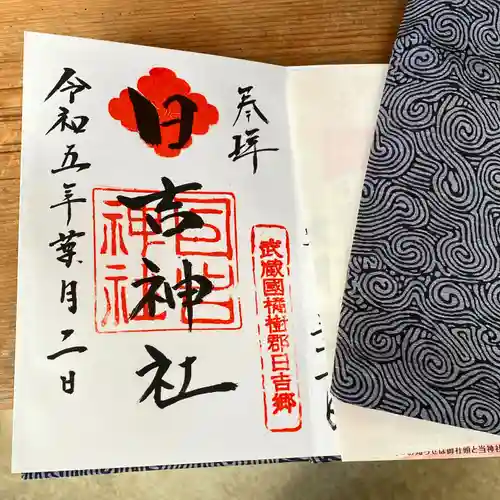 奉拝
武蔵國橘樹郡日吉郷
日吉神社
日吉神社
令和五年葉月二日